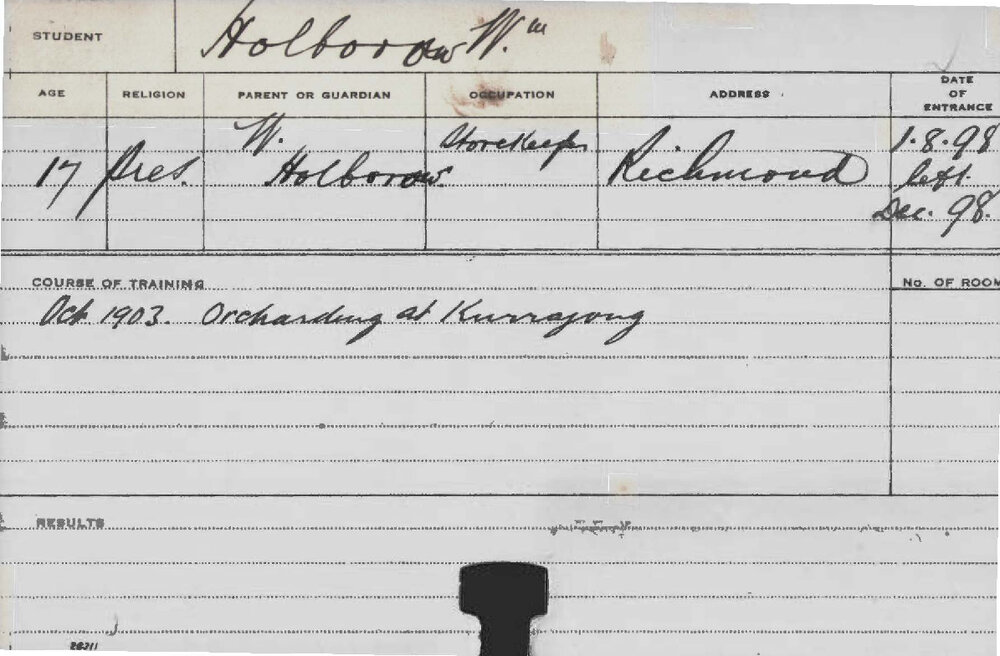 STUDENT Holborow Wm
AGE RELIGION PARENT OR GUARDIAN OCCUPATION ADDRESS DATE OF ENTRANCE
17 Pres. W. Holborow. Storekeeper Richmond 1.8.98
left
Dec. 98.
COURSE OF TRAINING No. OF ROOM
Oct 1903. Orcharding at Kurrajong
RESULTS
26711